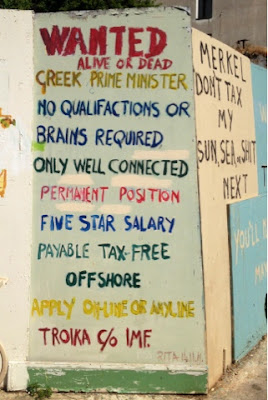 WANTED
ALIVE OR DEAD
GREEK PRIME MINISTER
NO QUALIFACTIONS OR
BRAINS REQUIRED
ONLY WELL CONNECTED
PERMANENT POSITION
FIVE STAR SALARY
PAYABLE TAX-FREE
OFFSHORE
APPLY ON-LINE OR ANYLINE
TROIKA C/O IMF.
MERKEL
DON'T TAX
MY
SUN, SEA, SHIT
NEXT
YOU'LL